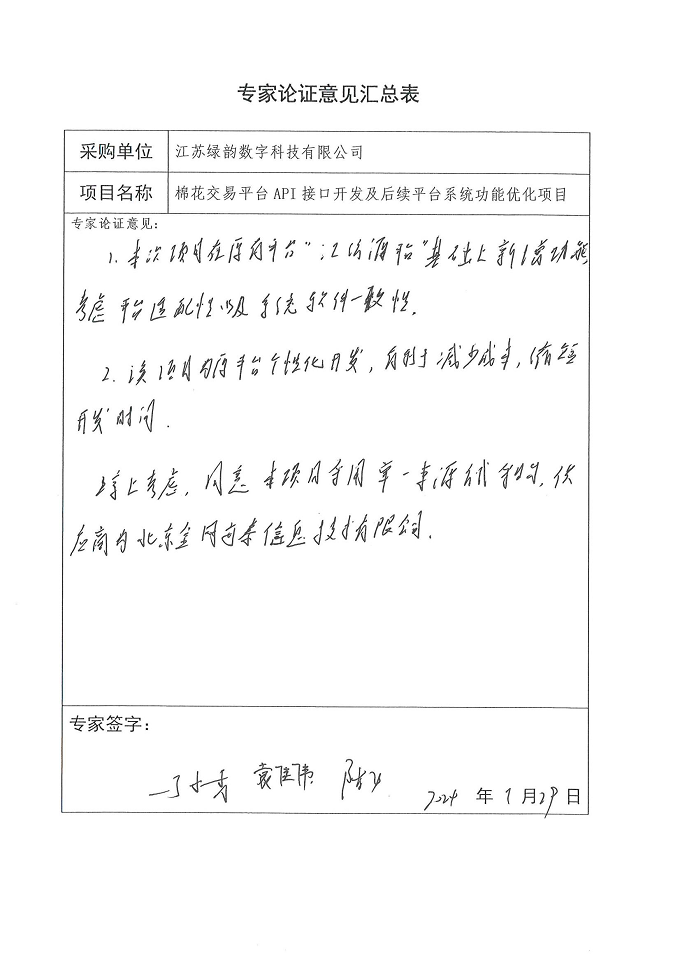 专家论证意见汇总表
采购单位 江苏绿韵数字科技有限公司
项目名称 棉花交易平台 API 接口开发及后续平台系统功能优化项目
专家论证意见：
1. 本次项目在原有平台" "基础上新增功能
考虑平台适配性以及系统软件一致性.
2. 该项目为原平台个性化开发，有利于减少成本，缩短
开发时间.
综上考虑，同意本项目采用单一来源 采购，供
应商为北京全网 信息技术有限公司.
专家签字：
袁佳伟
2024 年 7 月 29 日